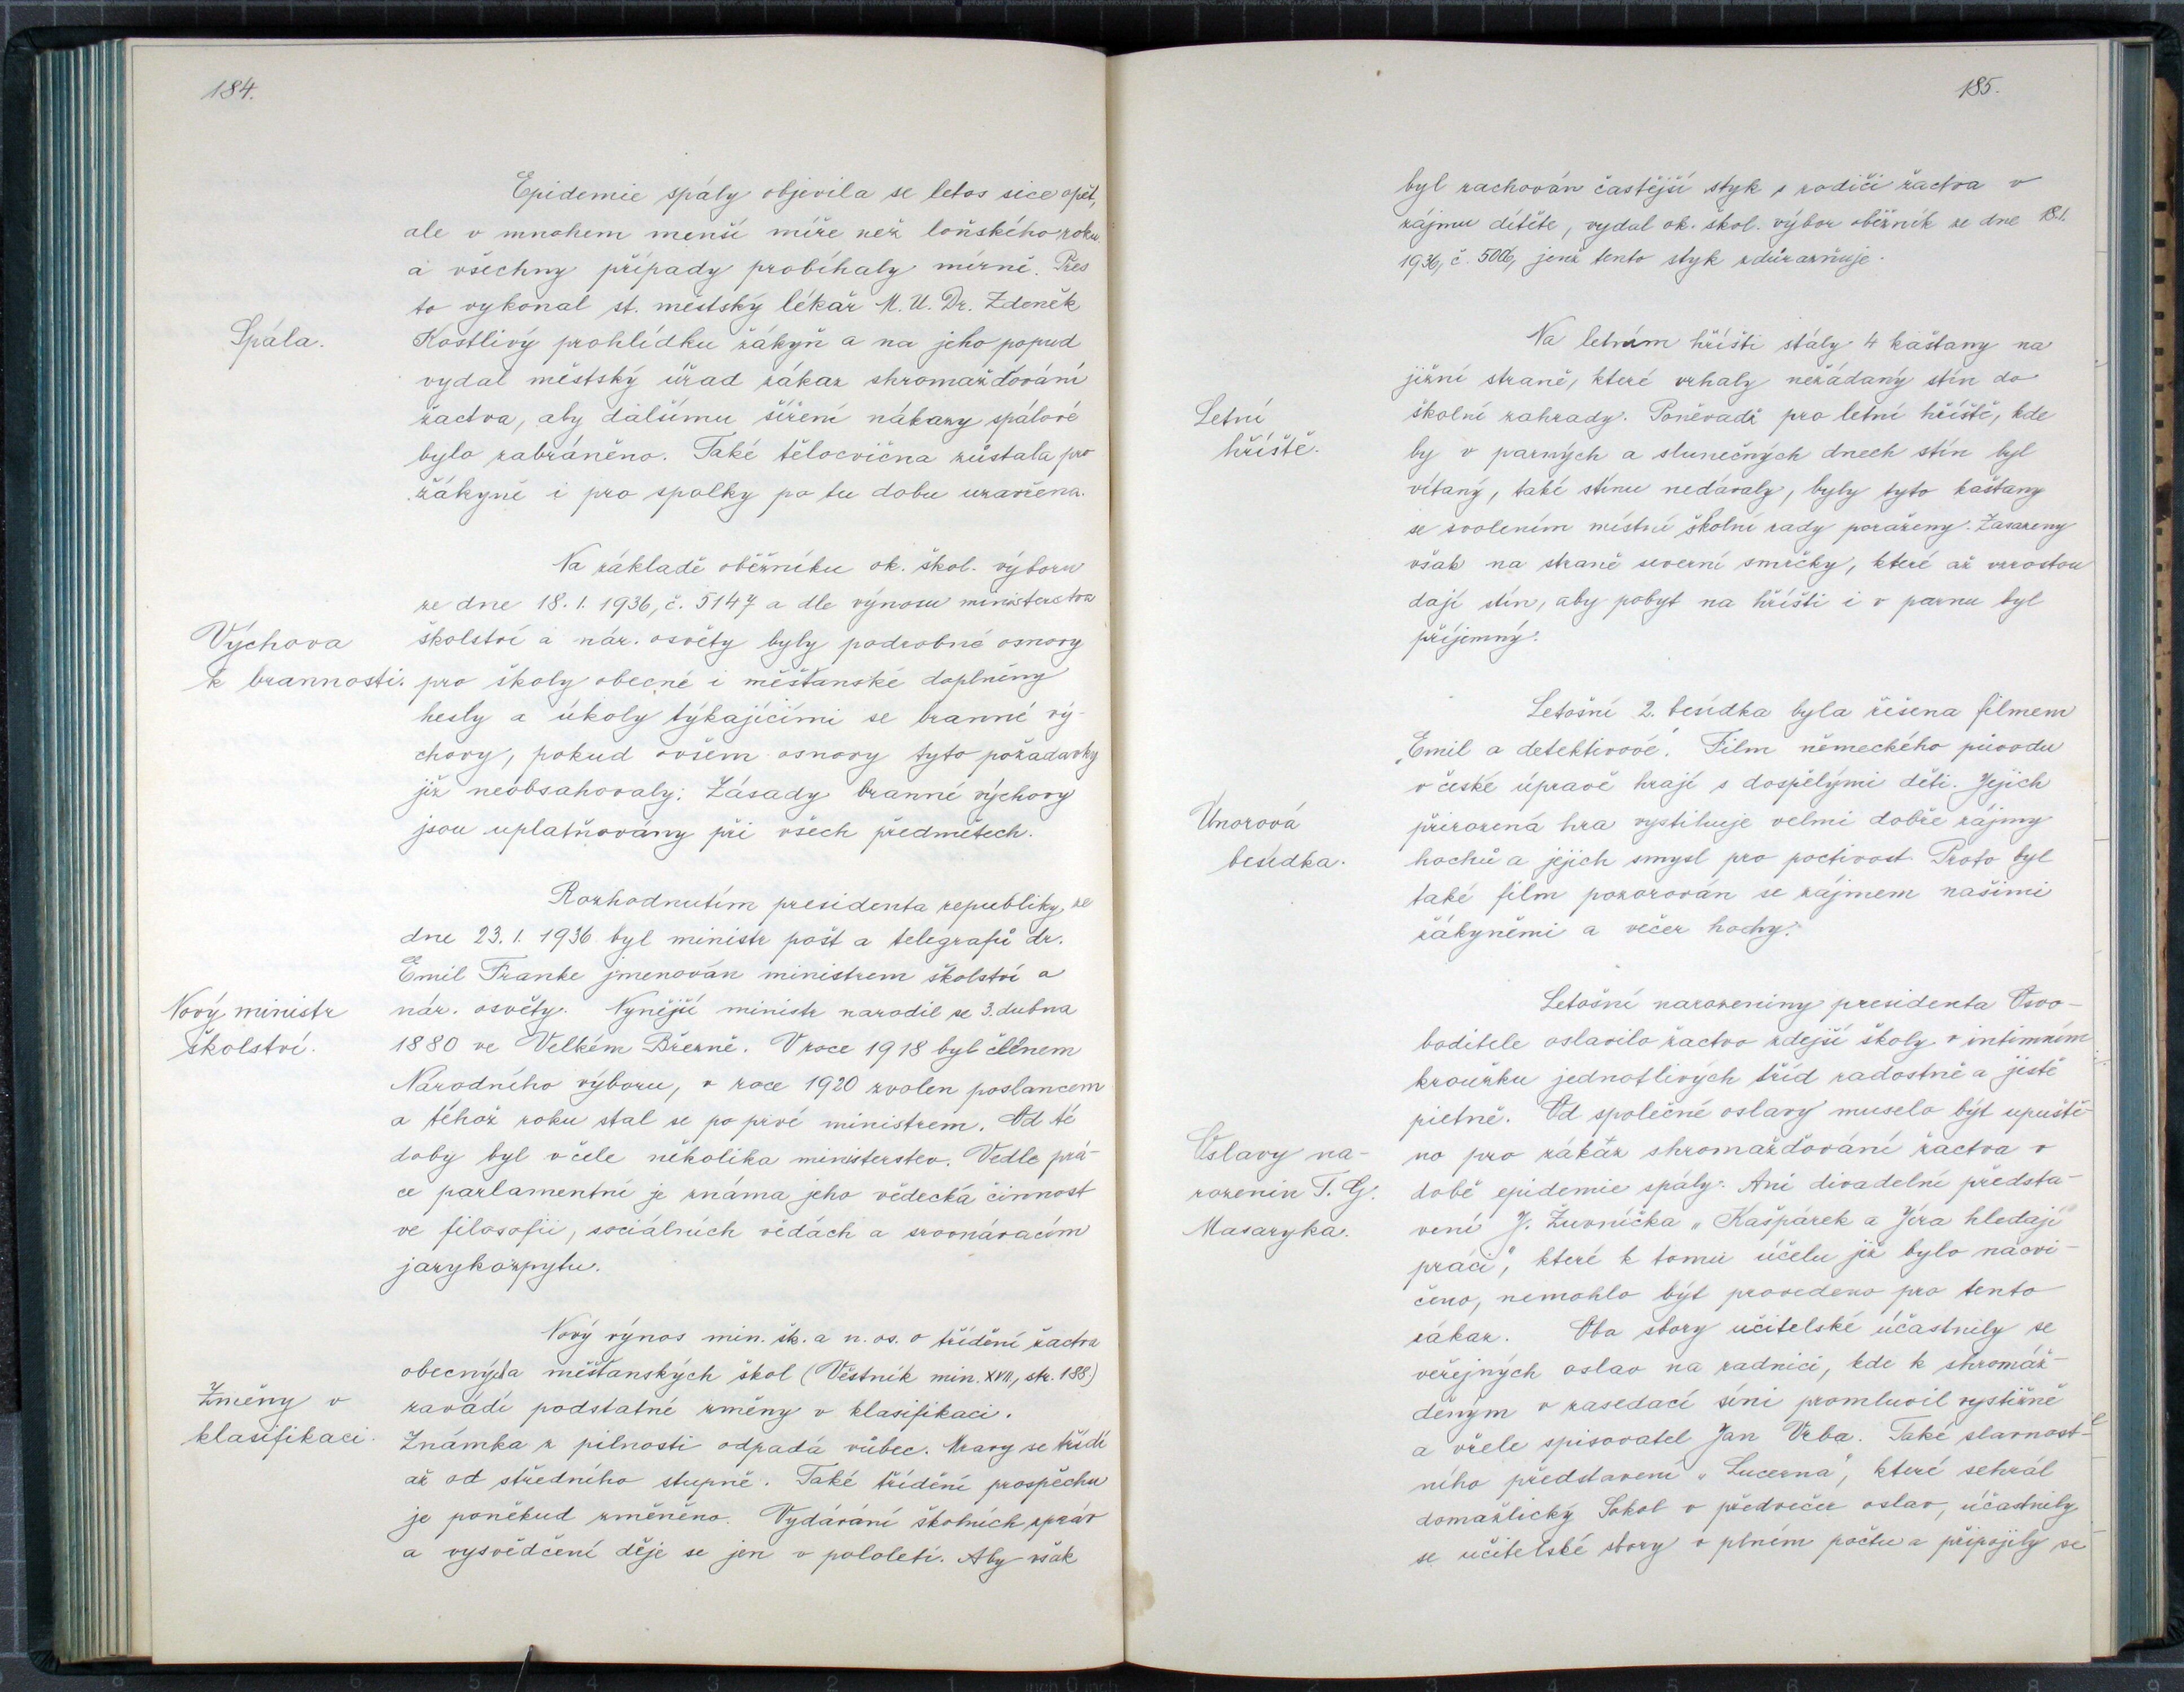 184.
Epidemie spály objevila se letos sice opět,
ale v mnohem menší míře než loňského roku
a všechny případy probíhaly mírně. Přes
to vykonal st. městský lékař M. U. Dr. Zdeněk
Spála.
Kostlivý prohlídku žákyň a na jeho popud
vydal městský úřad zákaz shromažďování
žactva, aby dalšímu šíření nákazy spálové
bylo zabráněno. Také tělocvična zůstala pro
žákyně i pro spolky po tu dobu uzavřena.
Na základě oběžníku ok. škol. výboru
ze dne 18. 1. 1936, č. 5147 a dle výnosu ministerstva
Výchova
k brannosti.
školství a nár. osvěty byly podrobné osnovy
pro školy obecné i měšťanské doplněny
hesly a úkoly týkajícími se branné vý-
chovy, pokud ovšem osnovy tyto požadavky
již neobsahovaly. Zásady branné výchovy
jsou uplatňovány při všech předmětech.
Rozhodnutím presidenta republiky ze
dne 23. 1. 1936 byl ministr pošt a telegrafů dr.
Emil Franke jmenován ministrem školství a
Nový ministr
školství.
nár. osvěty. Nynější ministr narodil se 3. dubna
1880 ve Velkém Březně. V roce 1918 byl členem
Národního výboru, v roce 1920 zvolen poslancem
a téhož roku stal se po prvé ministrem. Od té
doby byl v čele několika ministerstev. Vedle prá-
ce parlamentní je známa jeho vědecká činnost
ve filosofii, sociálních vědách a srovnávacím
jazykozpytu.
Nový výnos min. šk. a n. os. o třídění žactva
obecných a měšťanských škol (Věstník min. XVII, str. 188.)
Změny v
klasifikaci.
zavádí podstatné změny v klasifikaci.
Známka z pilnosti odpadá vůbec. Mravy se třídí
až od středního stupně. Také třídění prospěchu
je poněkud změněno. Vydávání školních zpráv
a vysvědčení děje se jen v pololetí. Aby však
185.
byl zachován častější styk s rodiči žactva v
zájmu dítěte, vydal ok. škol. výbor oběžník ze dne 18.1.
1936, č. 5006, jenž tento styk zdůrazňuje.
Na letním hřišti stály 4 kaštany na
jižní straně, které vrhaly nežádaný stín do
Letní
hřiště.
školní zahrady. Poněvadž pro letní hřiště, kde
by v parných a slunečných dnech stín byl
vítaný, také stínu nedávaly, byly tyto kaštany
se svolením místní školní rady poraženy. Zasazeny
však na straně severní smrčky, které až vzrostou
dají stín, aby pobyt na hřišti i v parnu byl
příjemný.
Letošní 2. besídka byla řešena filmem
„Emil a detektivové". Film německého původu
v české úpravě hrají s dospělými děti. Jejich
Únorová
besídka.
přirozená hra vystihuje velmi dobře zájmy
hochů a jejich smysl pro poctivost. Proto byl
také film pozorován se zájmem našimi
žákyněmi a večer hochy.
Letošní narozeniny presidenta Osvo-
boditele oslavilo žactvo zdejší školy v intimním
kroužku jednotlivých tříd radostně a jistě
pietně. Od společné oslavy muselo být upuště-
Oslavy na-
rozenin T. G.
Masaryka.
no pro zákaz shromažďování žactva v
době epidemie spály. Ani divadelní předsta-
vení J. Žuvníčka „Kašpárek a Jíra hledají
práci", které k tomu účelu již bylo nacvi-
čeno, nemohlo být provedeno pro tento
zákaz. Oba sbory učitelské účastnily se
veřejných oslav na radnici, kde k shromáž-
děným v zasedací síni promluvil vystižně
a vřele spisovatel Jan Vrba. Také slavnost-
ního představení „Lucerna", které sehrál
domažlický Sokol v předvečer oslav, účastnily
se učitelské sbory v plném počtu a připojily se